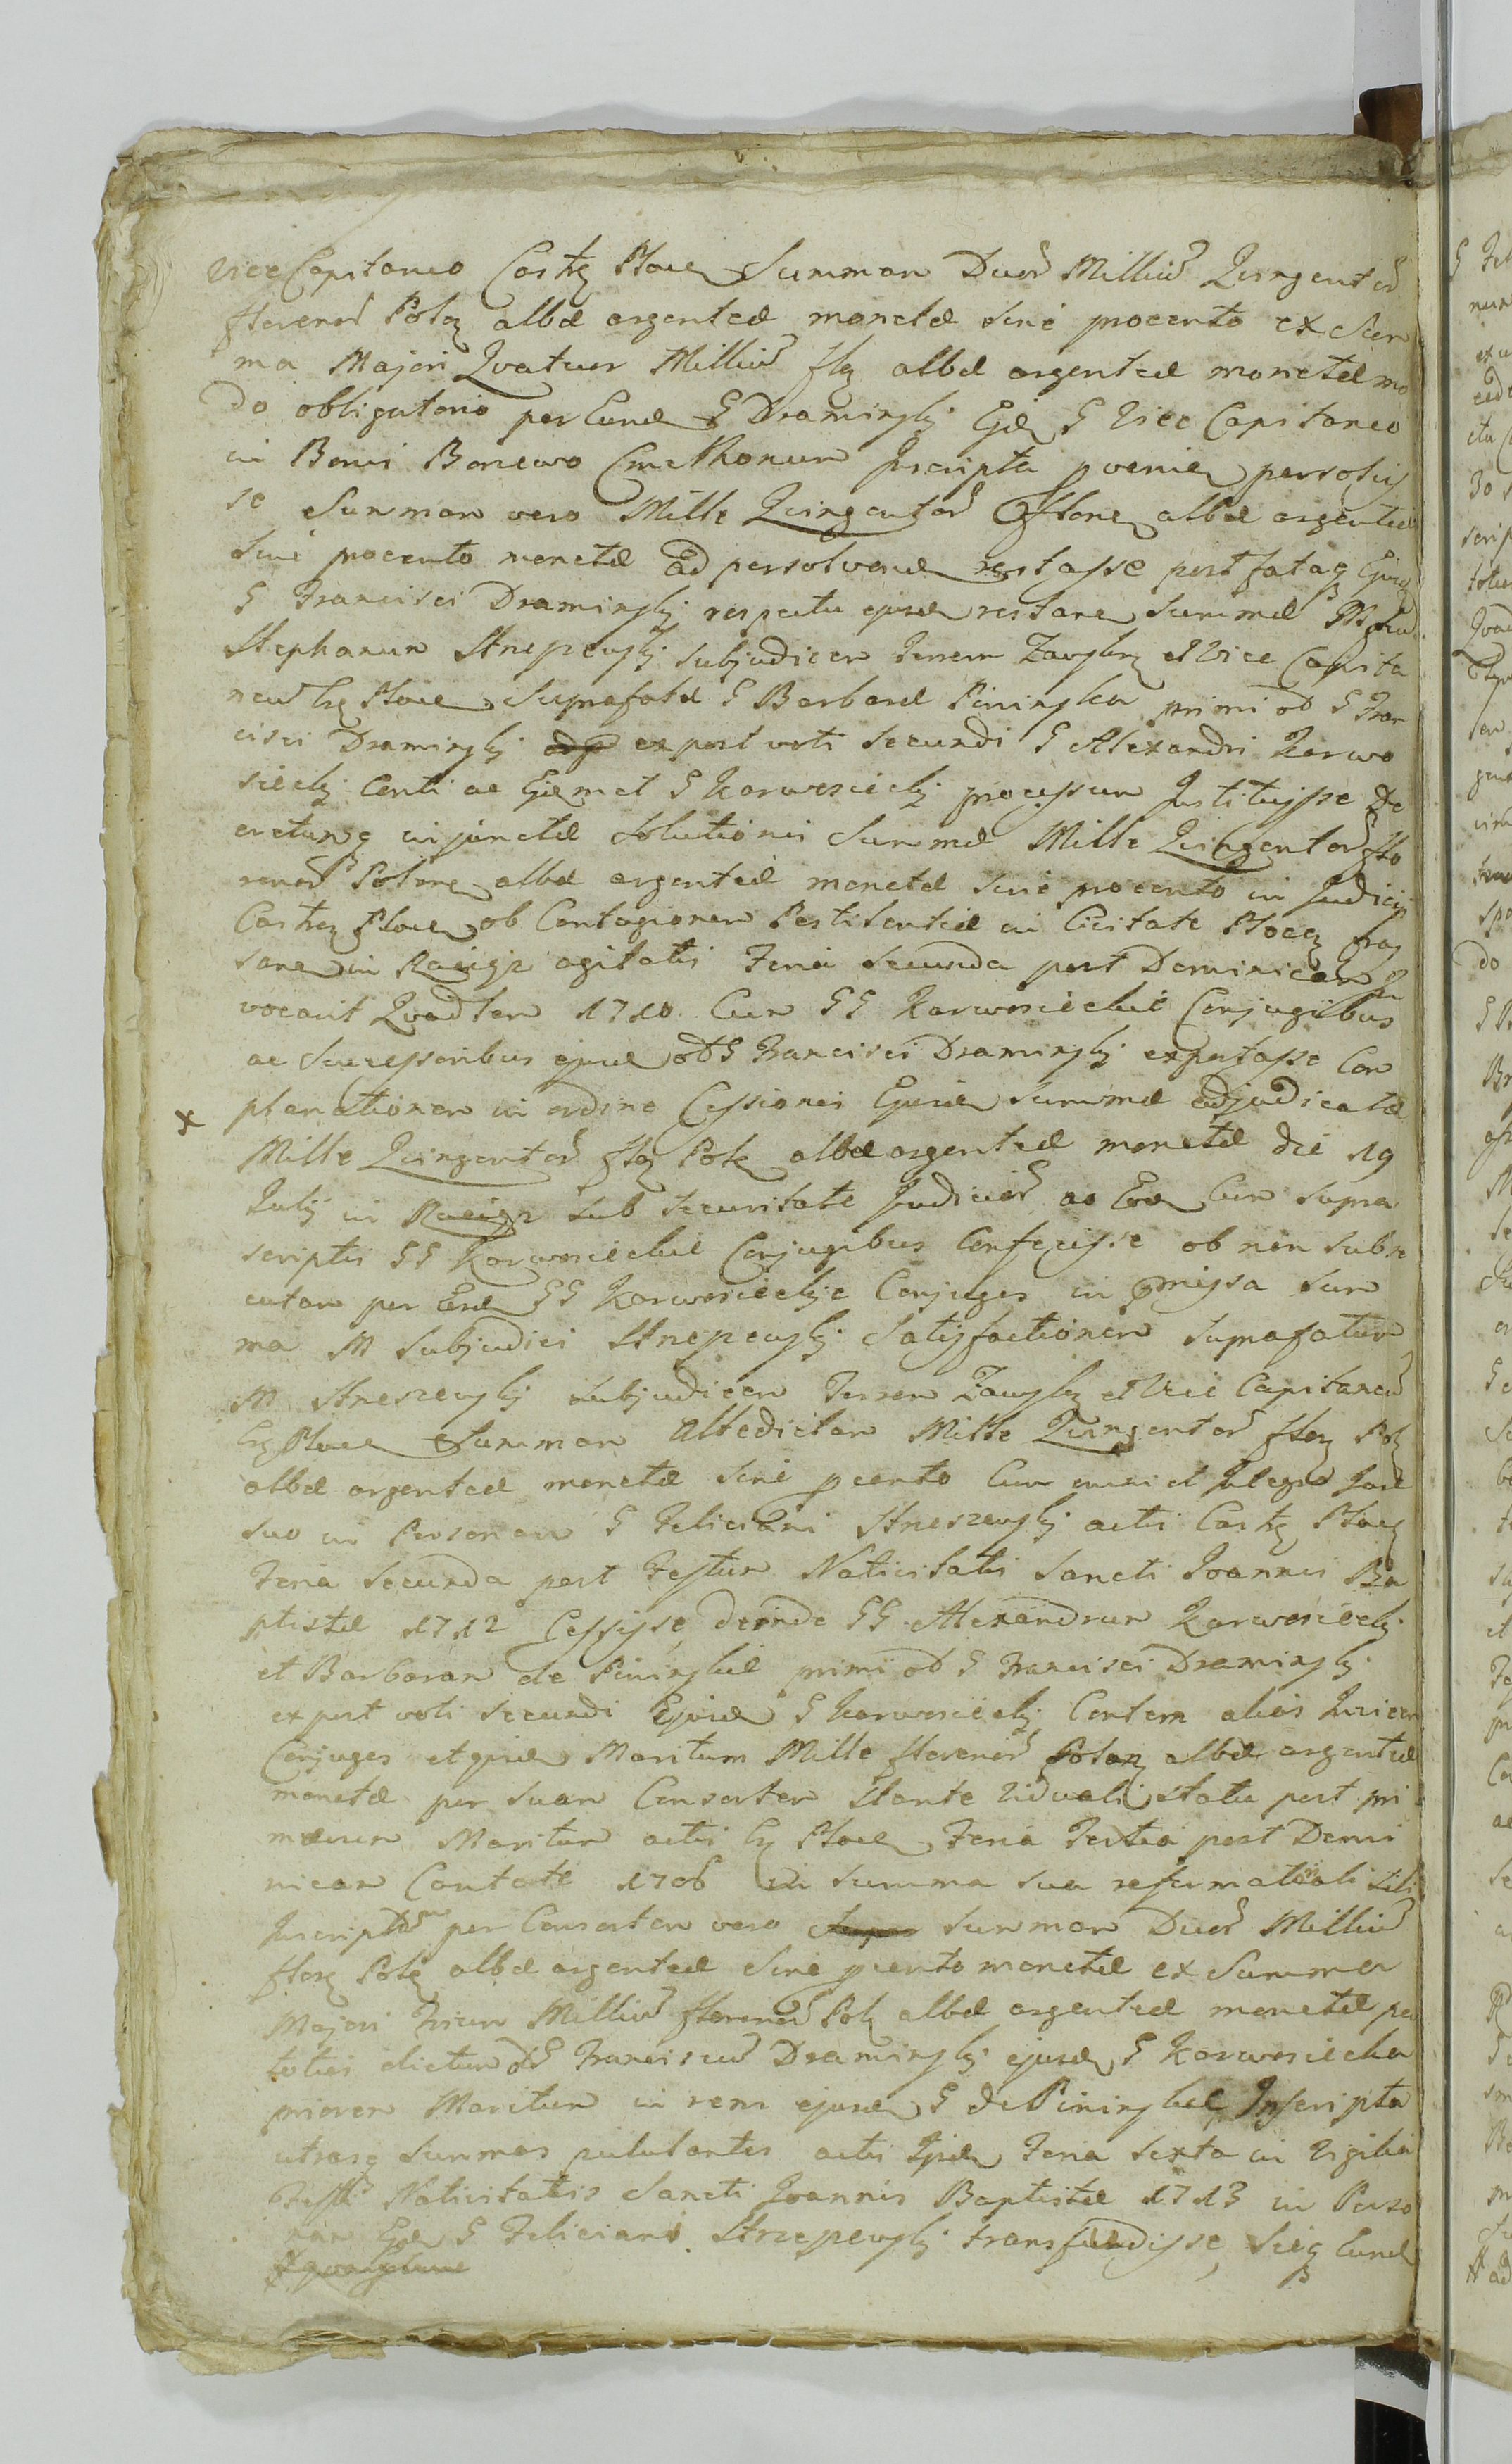 Vice Capitaneo Castr Ploce Summam Duor Milliu Quingentor
florenor Polo albæ argenteæ monetæ sine procento ex Sum
ma Majori Quatuor Milliu flor albæ argenteæ monetæ mo
do obligatorio per Eund G Draminsky Eid G Vice Capitaneo
in Bonis Bonewo Cmethonum Inscripta proveniē persolvis
se Summam vero Mille Quingentor florē albæ argenteæ
sine procento monetæ ad persolvend restasse post fataq Ejusd
G Francisci Draminskj respectu ejusd restanē Summæ M olim
Stephanum Strzeszewskj Subjudicem Terrem Zawskrz et Vice Capita
neu Cs Ploce Suprafatæ G Barbaræ Pininska primi od G Fran
cisci Draminskj expost voti secundi G Alexandri Karwo
siecky Conti ac Eidmet G Karwosiecky processum Instituisse De
cretumq injunctæ Solutionis Summæ Mille Quingentor flo
renor Polonē albæ argenteæ monetæ sine procento in Judiciis
Castren Ploce ob Contagionem Pestilentiæ in Civitate Ploce gras
sanē in Raciąz agitatis Feria Secunda post Dominicam In
vocavit Quadlem 1710 Cum GG Karwosieckie Conjugibus
ac Successoribus ejusd od G Francisci Draminskj expostasse Com
planationem in ordine Cessionis Ejusd Summæ adjudicatæ
x
Mille Quingentor flor Polo albæ argenteæ monetæ die 19
Julij in Raciąz sub securitate Judicior ac Eod Cum supra
scriptis GG Karwosieckie Conjugibus Confecisse ob non subse
cutam per Eosd GG Karwosieckie Conjuges in præmissa Sum
ma M Subjudici Strzeszewskj Satisfactionem suprafatum
M Strzeszewskj Subjudicem Terrem Zawskrz et Vice Capitaneu
Cs Ploce Summam Altedictam Mille Quingentor flor Polo
albæ argenteæ monetæ sine pcento Cum omni et Integro Jure
suo in Personam G Feliciani Strzeszewskj actis Castr Ploce
Feria Secunda post Festum Nativitatis Sancti Joannis Ba
ptistæ 1712 Cessisse deinde GG Alexandrum Karwosiecky
et Barbaram de Pininskie primi od G Francisci Draminskj
expost voti secundi Ejusd G Karwosiecky Consortem alias Invicem
Conjuges et quid Maritum Mille florenor Polon albæ argenteæ
monetæ per suam Consortem stante viduali statu post pri
mævum Maritum actis Cs Ploce Feria Tertia post Domi
nicam Cantate 1706 in Summa sua reformationali sibi
Inscriptor per Consortem vero Summam Duor Milliu
flor Polo albæ argenteæ sine pcento monetæ ex Summa
Majori Trium Milliu florenor Polo albæ argenteæ monetæ per
toties dictum od G Franciscu Draminskj ejusd G Karwosiecka
priorem Maritum in rem ejusd G de Pininskie Inscripta
utrasq Summas pullulantes actis Ijsd Feria Sexta in Vigilia
Festi Nativitatis Sancti Joannis Baptistæ 1713 in Perso
nam Ejd G Feliciani Strzeszewskj transfudisse, Sicq Eund